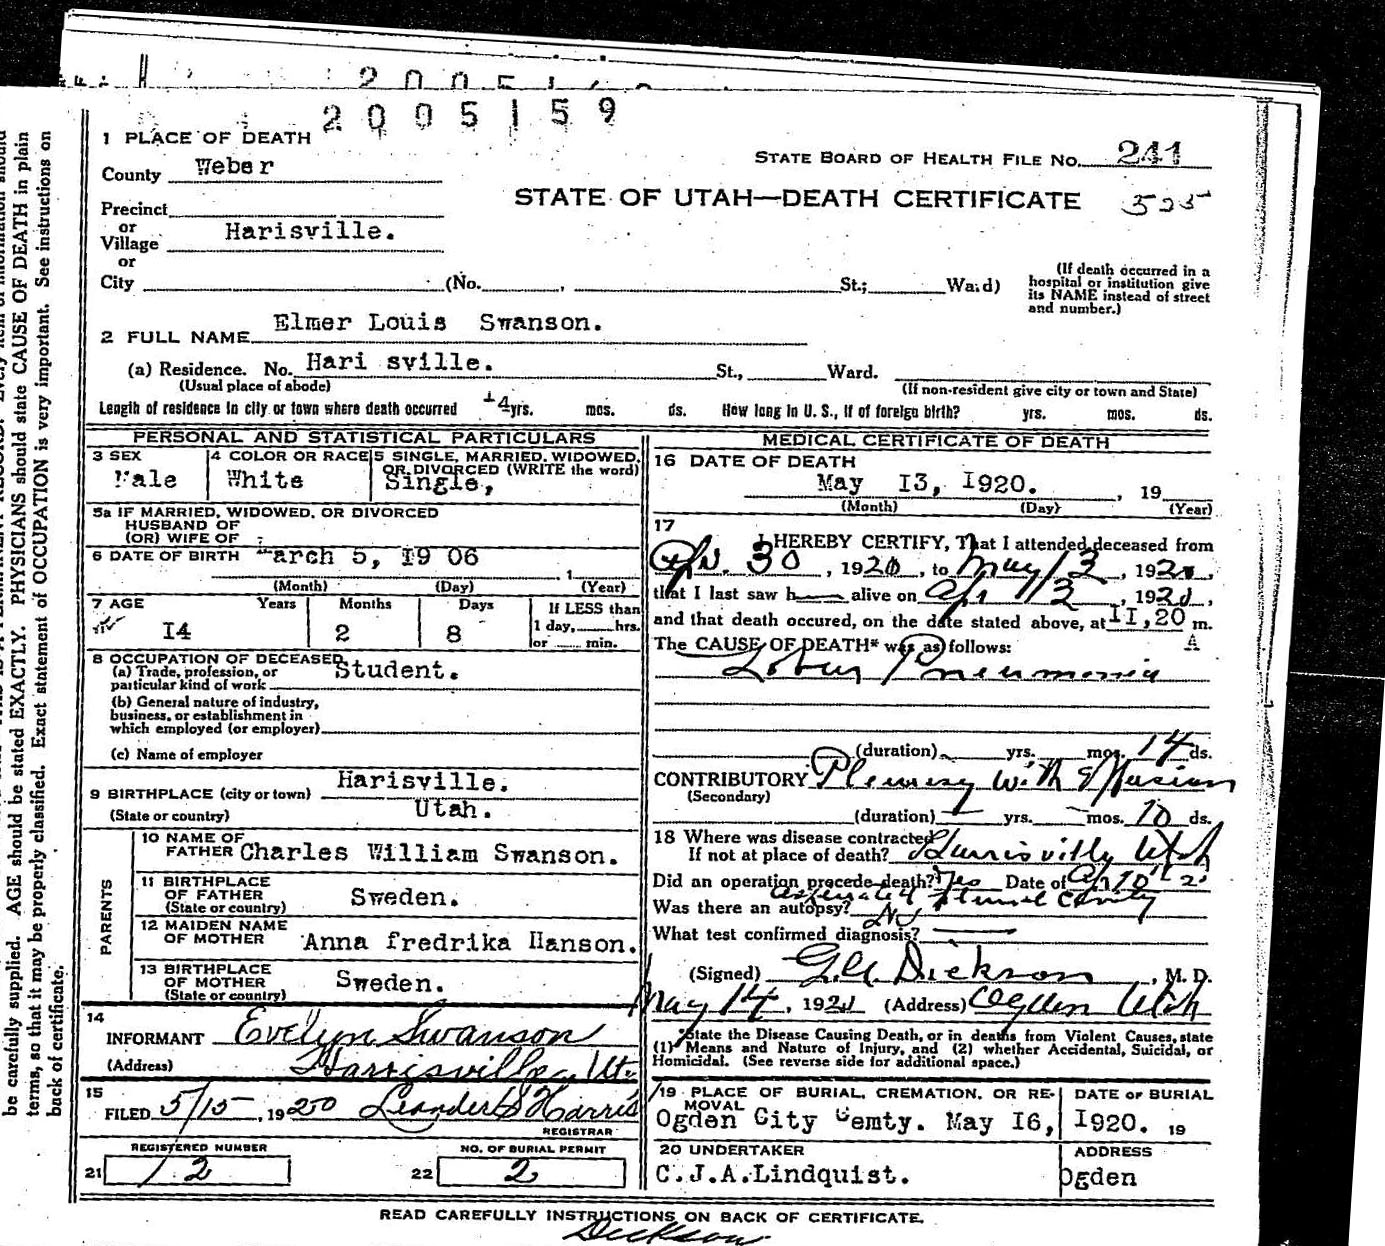 2005159
1 PLACE OF DEATH
County Weber
STATE BOARD OF HEALTH FILE NO. 241
STATE OF UTAH—DEATH CERTIFICATE 525
Precinct
or
Village Harisville.
or
City (No. , St.; Ward)
(If death occurred in a
hospital or institution give
its NAME instead of street
and number.)
2 FULL NAME Elmer Louis Swanson.
(a) Residence. No. Hari sville. St., Ward.
(Usual place of abode) (If non-resident give city or town and State)
Length of residence in city or town where death occurred 14 yrs. mos. ds. How long in U. S., if of foreign birth? yrs. mos. ds.
PERSONAL AND STATISTICAL PARTICULARS
3 SEX Male
4 COLOR OR RACE White
5 SINGLE, MARRIED, WIDOWED,
OR DIVORCED (WRITE the word)
Single,
5a IF MARRIED, WIDOWED, OR DIVORCED
HUSBAND OF
(OR) WIFE OF
6 DATE OF BIRTH March 5, I9 06
(Month) (Day) , 1 (Year)
7 AGE Years Months Days
I4 2 8
If LESS than
1 day, hrs.
or min.
8 OCCUPATION OF DECEASED
(a) Trade, profession, or
particular kind of work Student.
(b) General nature of industry,
business, or establishment in
which employed (or employer)
(c) Name of employer
9 BIRTHPLACE (city or town) Harisville.
(State or country) Utah.
PARENTS
10 NAME OF
FATHER Charles William Swanson.
11 BIRTHPLACE
OF FATHER
(State or country) Sweden.
12 MAIDEN NAME
OF MOTHER Anna fredrika Hanson.
13 BIRTHPLACE
OF MOTHER
(State or country) Sweden.
14
INFORMANT Evelyn Swanson
(Address) Harrisville, Ut.
15
FILED 5/15, 1920 Leander S Harris
REGISTRAR
REGISTERED NUMBER
21 12
NO. OF BURIAL PERMIT
22 2
MEDICAL CERTIFICATE OF DEATH
16 DATE OF DEATH
May I3, I920. , 19
(Month) (Day) (Year)
17
I HEREBY CERTIFY, That I attended deceased from
Apr. 30, 1920, to May 13, 1920,
that I last saw h alive on Apr 12, 1920,
and that death occured, on the date stated above, at II,20 m.
A
The CAUSE OF DEATH* was as follows:
Lobar Pneumonia
(duration) yrs. mos. 14 ds.
CONTRIBUTORY Pleuresy with Effusion
(Secondary)
(duration) yrs. mos. 10 ds.
18 Where was disease contracted
If not at place of death? Harrisville Utah
Did an operation precede death? Yes Date of
Was there an autopsy? No
What test confirmed diagnosis?
(Signed) Dickson, M. D.
May 14, 1920 (Address) Ogden Utah
*State the Disease Causing Death, or in deaths from Violent Causes, state
(1) Means and Nature of Injury, and (2) whether Accidental, Suicidal, or
Homicidal. (See reverse side for additional space.)
19 PLACE OF BURIAL, CREMATION, OR RE-
MOVAL
Ogden City Cemty. May I6,
DATE OF BURIAL
I920. 19
20 UNDERTAKER
C.J.A.Lindquist.
ADDRESS
Ogden
READ CAREFULLY INSTRUCTIONS ON BACK OF CERTIFICATE.
Dickson
be carefully supplied. AGE should be stated EXACTLY. PHYSICIANS should state CAUSE OF DEATH in plain
terms, so that it may be properly classified. Exact statement of OCCUPATION is very important. See instructions on
back of certificate.